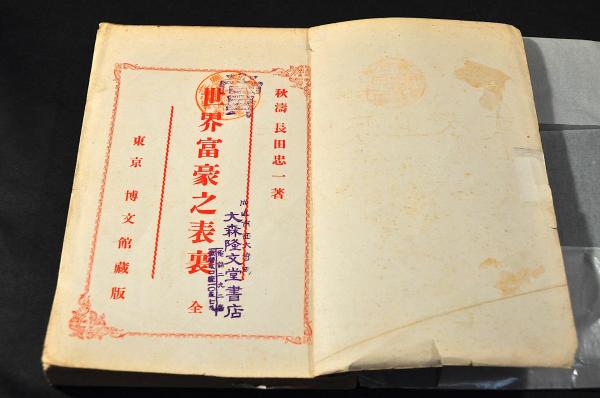 秋濤 長田忠一著
世界富豪之表裏 全
大森隆文堂書店
東京 博文館藏版